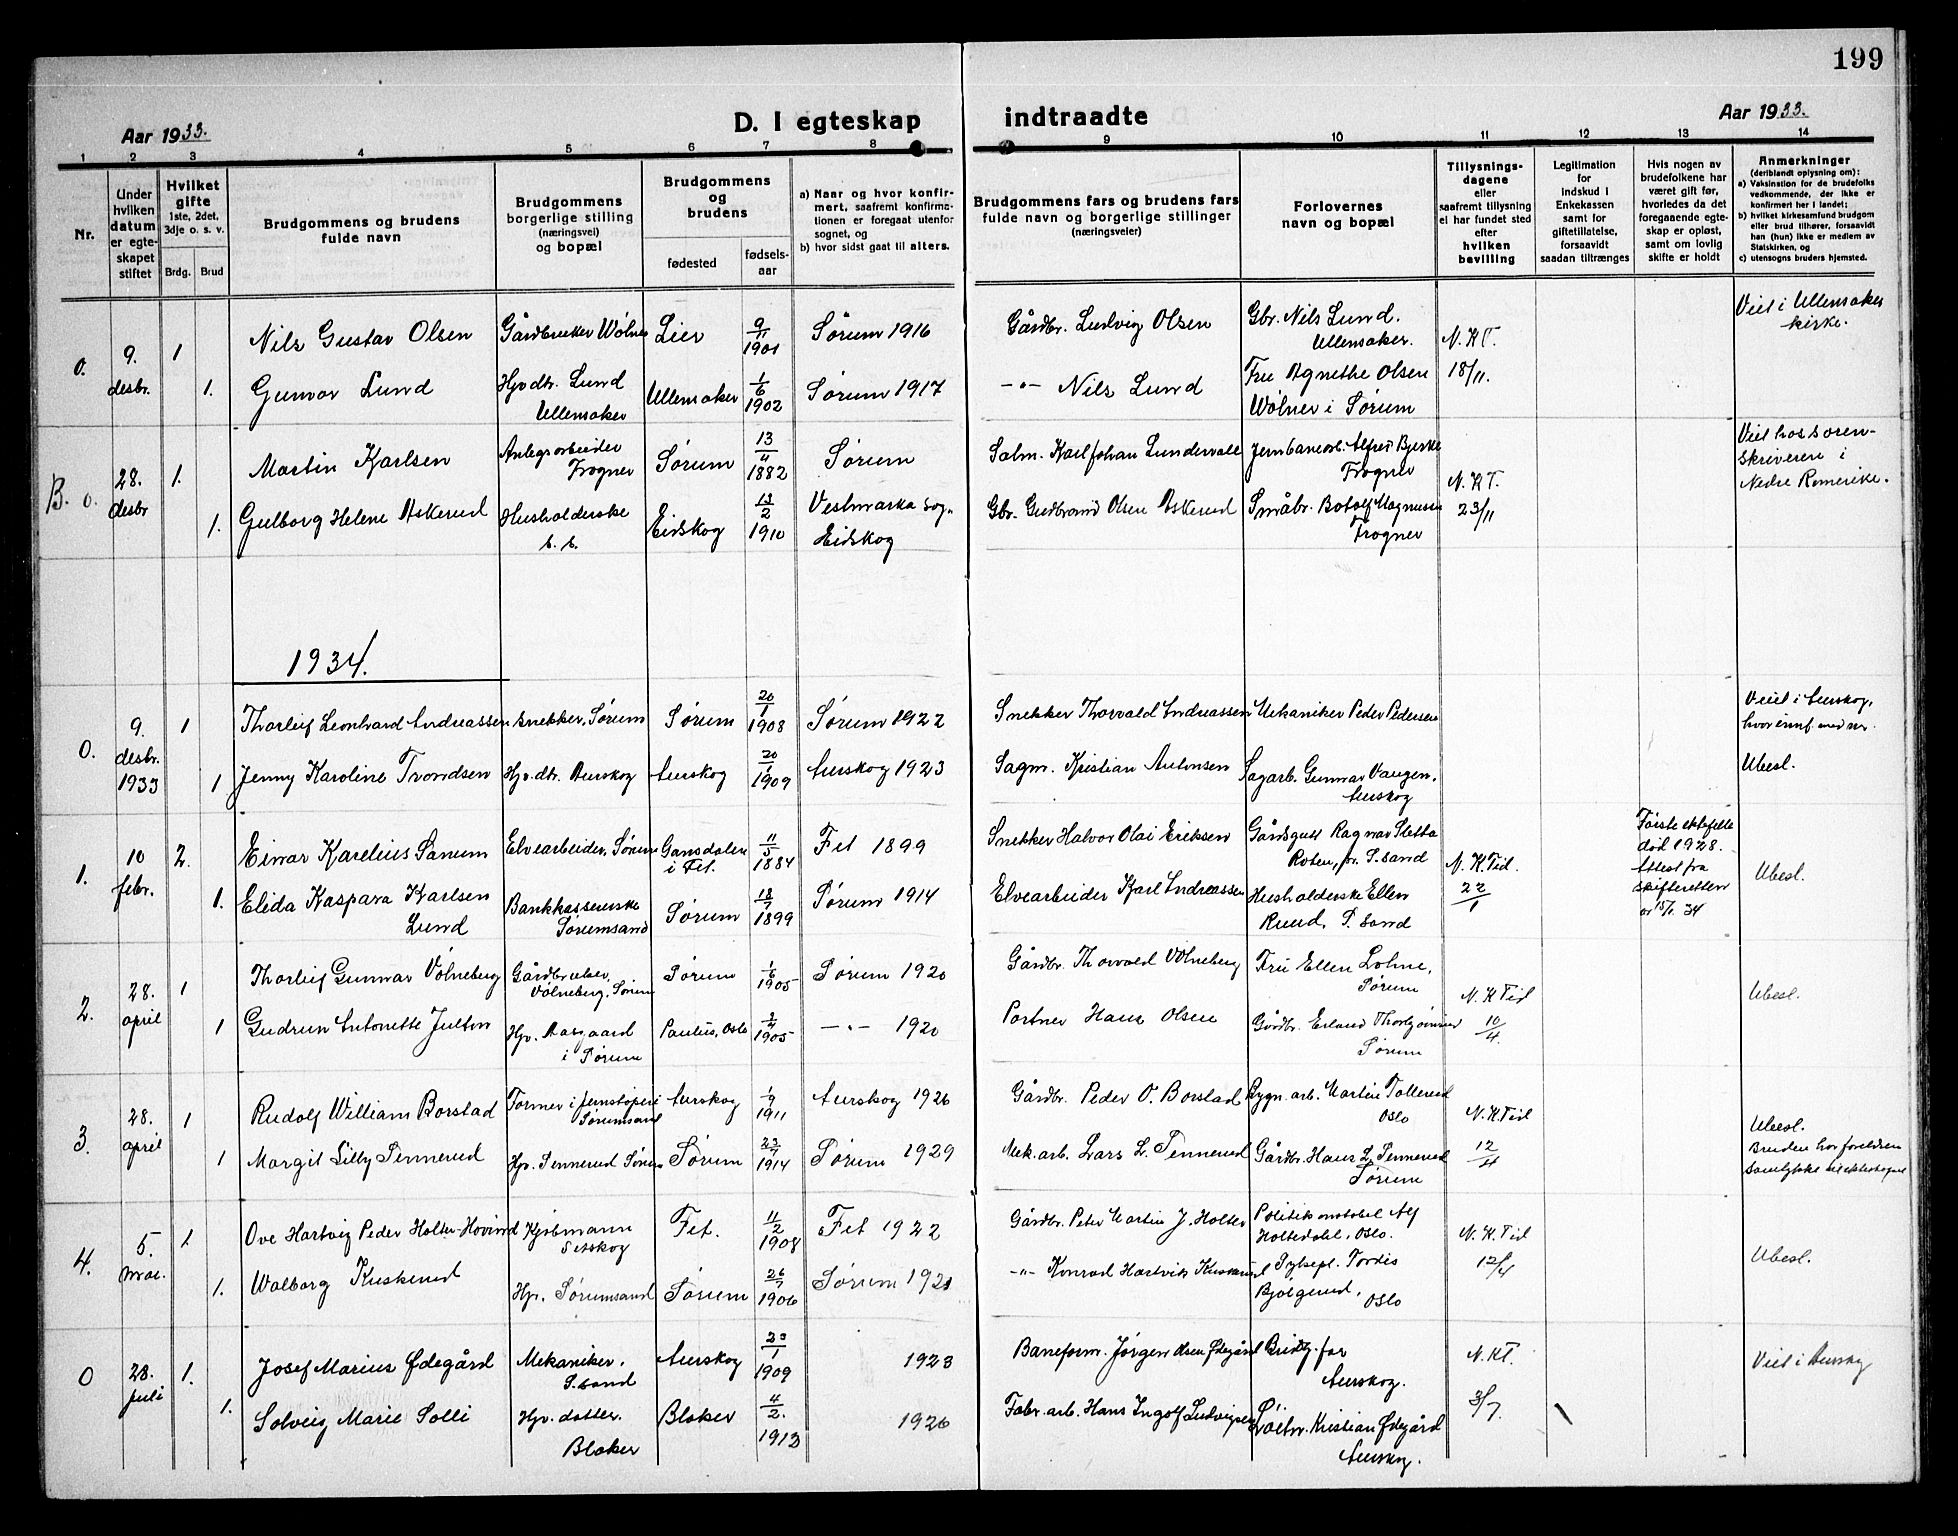 199
Aar 1933.
D. I egteskap indtraadte
Aar 1933.
1 2 3 4 5 6 7 8 9 10 11 12 13 14
Nr.
Under hvilken datum er egteskapet stiftet
Hvilket gifte 1ste, 2det, 3dje o. s. v.
Brdg. Brud
Brudgommens og brudens fulde navn
Brudgommens borgerlige stilling (næringsvei) og bopæl
Brudgommens og brudens
fødested
fødselsaar
a) Naar og hvor konfirmert, saafremt konfirmationen er foregaat utenfor sognet, og
b) hvor sidst gaat til alters.
Brudgommens fars og brudens fars fulde navn og borgerlige stillinger (næringsveier)
Forlovernes navn og bopæl
Tillysningsdagene eller saafremt tillysning ei har fundet sted efter hvilken bevilling
Legitimation for indskud i Enkekassen samt for giftetillatelse, forsaavidt saadan tiltrænges
Hvis nogen av brudefolkene har været gift før, hvorledes da det foregaaende egteskap er opløst, samt om lovlig skifte er holdt
Anmerkninger (deriblandt oplysning om):
a) Vaksination for de brudefolks vedkommende, der ikke er konfirmert her i landet;
b) hvilket kirkesamfund brudgom eller brud tilhører, forsaavidt han (hun) ikke er medlem av Statskirken, og
c) utensogns bruders hjemsted.
0. 9. desbr. 1 Nils Gustav Olsen Gårdbruker Wölner Lier 9/11 1901 Sørum 1916 Gårdbr. Ludvig Olsen Gbr. Nils Lund. Ullensaker. N.KT. 18/11. Viet i Ullensaker kirke.
1. Gunvor Lund Hjv.dtr. Lund Ullensaker Ullensaker 1/6 1902 Sørum 1917 -"- Nils Lund Fru Agnethe Olsen Wölner i Sørum
B. 0. 28. desbr 1. Martin Karlsen Anlegsarbeider Frogner Sørum 13/4 1882 Sørum Salm. Karl Johan Lundervall Jernbanearb. Alfred Bjerke Frogner N.KT. 23/11 Viet hos sorenskriveren i Nedre Romerike.
1. Gulborg Helene Askerud Husholderske Eidskog 13/2 1910 Vestmarka sog. Eidskog Gbr. Gudbrand Olsen Askerud Småbr. Botolf Magnusen Frogner
1934.
0. 9. desbr. 1933 1 Thorleif Leonhard Andreassen Snekker, Sørum Sørum 20/1 1908 Sørum 1922 Snekker Thorvald Andreassen Mekaniker Peder Pedersen Viet i Aurskog, hvor innf. med nr.
1 Jenny Karoline Trondsen Hjv.dtr. Aurskog Aurskog 20/1 1909 Aurskog 1923 Sagm. Kristian Antonsen Sagarb. Gunnar Vangen, Aurskog Ubesl.
1. 10 febr. 2. Einar Karelius Sanum Elvearbeider, Sørum Gansdalen i Fet. 11/5 1884 Fet 1899 Snekker Halvor Olai Eriksen Gårdsgutt Ragnar Sletta Roten, pr. S.sand N.KTid. 22/1 Første ektefelle død 1928. Attest fra skifteretten av 15/1. 34 Ubesl.
1. Elida Kaspara Karlsen Lund Bankkassererske Sørumsand Sørum 18/7 1899 Sørum 1914 Elvearbeider Karl Andreassen Husholderske Ellen Ruud, S.sand
2. 28. april 1 Thorleif Gunnar Völneberg Gårdbruker, Völneberg, Sørum Sørum 1/6 1905 Sørum 1920 Gårdbr. Thorvald Völneberg Fru Ellen Lohne, Sørum N.KTid 10/4. Ubesl.
1 Gudrun Antonette Julton Hjv. Aasgaard i Sørum Paulus, Oslo 2/4 1905 -"- 1920 Portner Hans Olsen Gårdbr. Erland Sørum
3. 28. april 1 Rudolf William Borstad Former i jernstøperi Sørumsand Aurskog 1/9 1911 Aurskog 1926 Gårdbr. Peder O. Borstad Bygn.arb. Martin Tollerud Oslo N.KTid 12/4 Ubesl. Bruden har foreldrenes samtykke til ekteskapet
1 Margit Lilly Tennerud Hjv. Tennerud Sørum Sørum 23/7 1914 Sørum 1929 Mek.arb. Lars L. Tennerud Gårdbr. Hans L. Tennerud Sørum
4. 5. mai. 1. Ove Hartvig Peder Holter-Hovind Kjøbmann Setskog Fet. 11/2 1908 Fet 1922 Gårdbr. Peter Martin J. Holter Politikonstabel Alf Holtedahl, Oslo. N.K.Tid 12/4 Ubesl.
1. Walborg Kuskerud Hjv. Sørumsand Sørum 26/7 1906 Sørum 1921 -"- Konrad Hartvik Kuskerud Sykepl. Tordis Bjölgerud, Oslo
0 28. juli 1. Josef Marius Ødegård Mekaniker. S.sand Aurskog 23/1 1909 1923 Baneform. Jørgen Olsen Ødegård Brudg. far Aurskog. N.KT. 3/7. Viet i Aurskog
1. Solveig Marie Solli Hjv. datter. Blaker Blaker 4/2. 1913 1926 Fabr.arb. Hans Ingolf Ludvigsen Kristian Ødegård Aurskog.